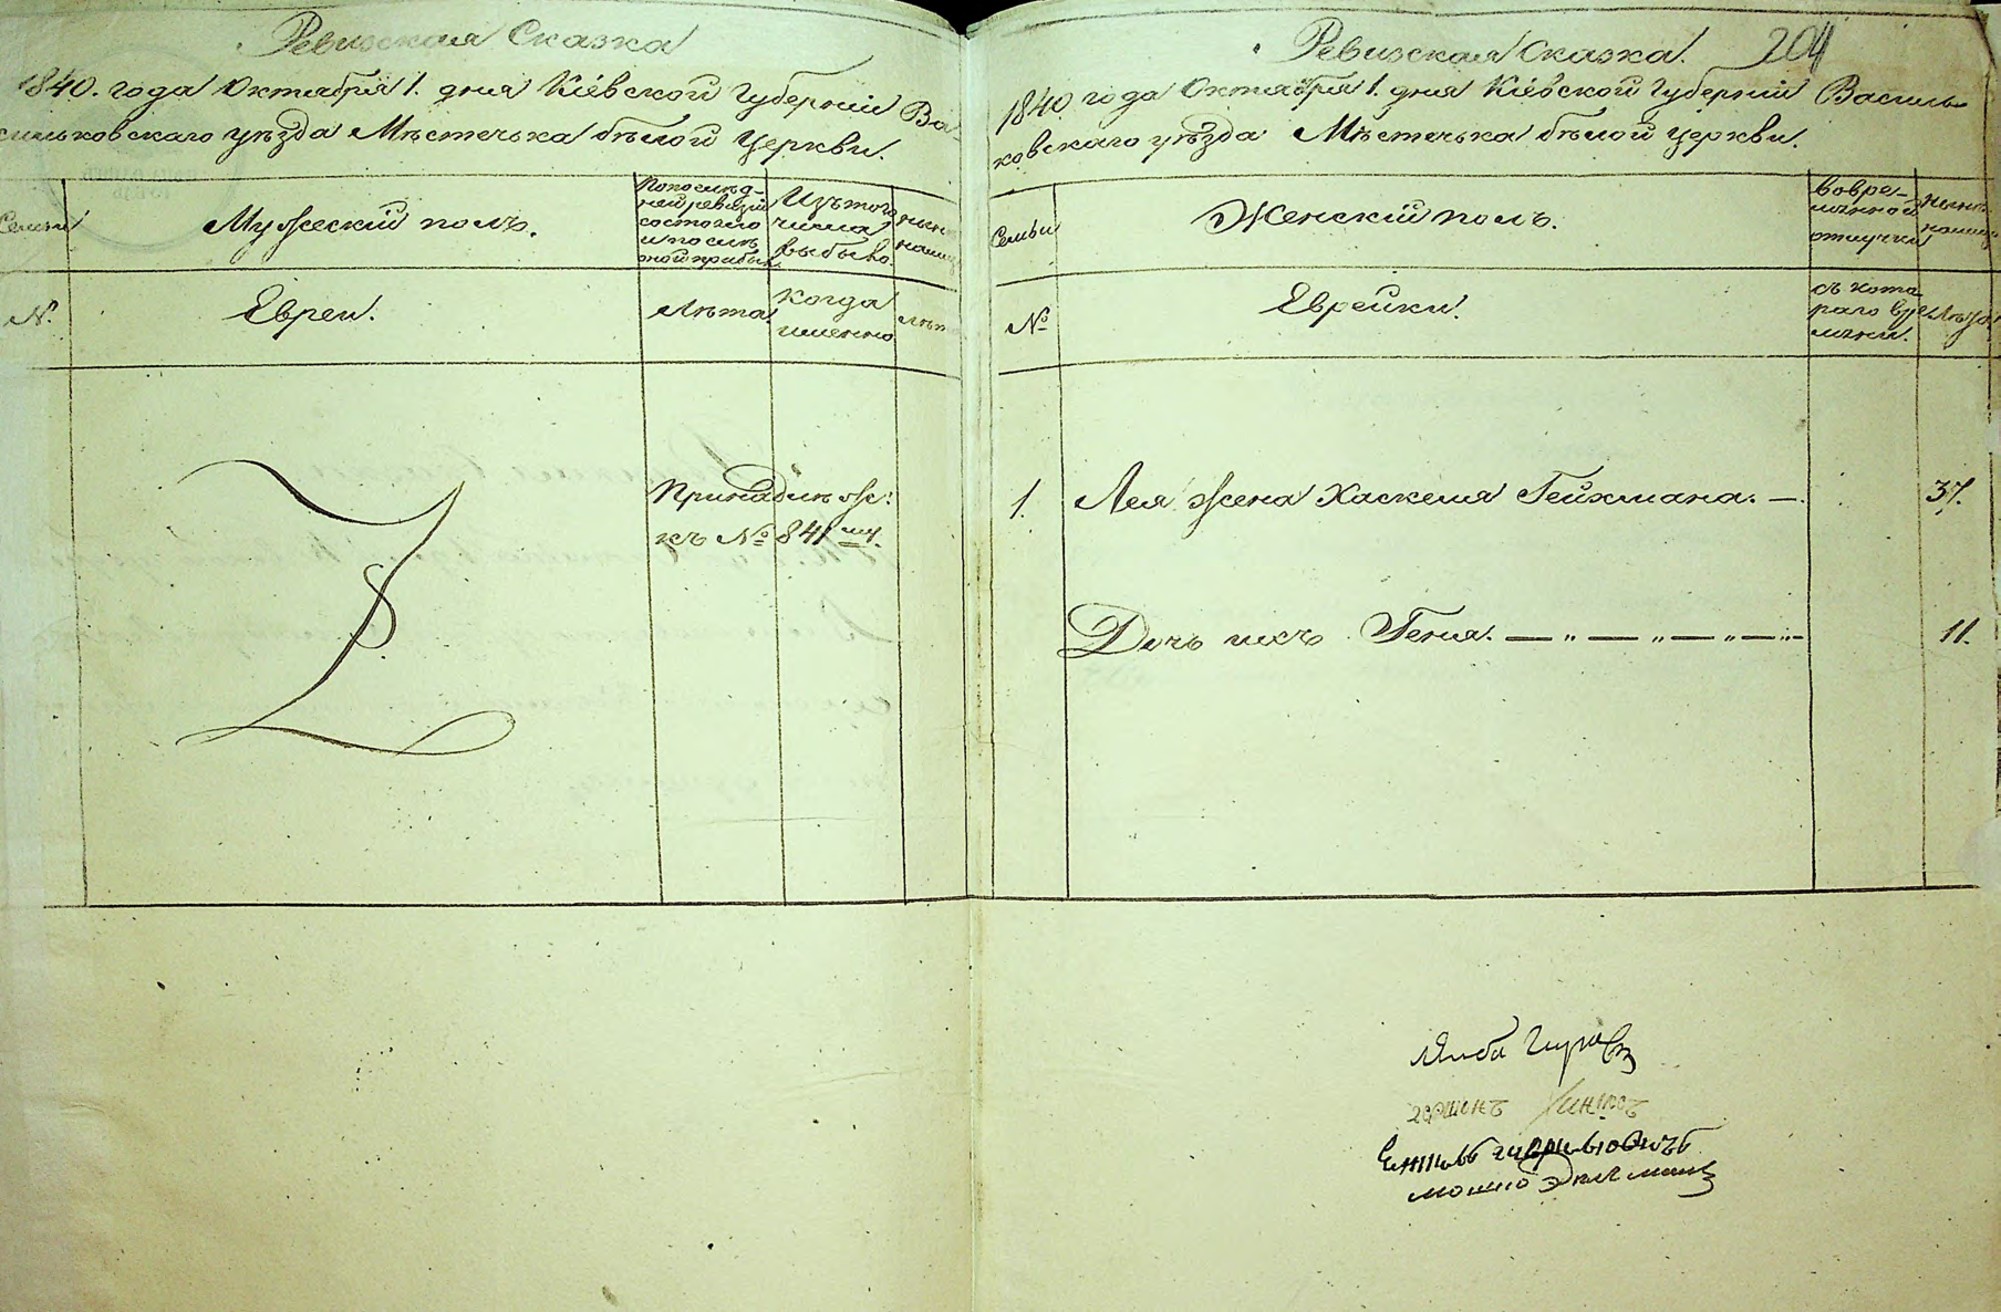 Ревизская Сказка
1840. года Октября 1. дня Кіевской Губерніи Ва-
сильковскаго уѣзда Мѣстечька бѣлой Церкви.
Семьи
Мужескій полъ.
По послѣд-
ней ревизіи
состояло
и послѣ
оной прибыло
Изъ того
числа
выбыло.
нынѣ
налицо
№.
Евреи.
Лѣта.
когда
именно
Лѣта
Принадлеж:
къ № 841му.
Ревизская Сказка. 204
1840 года Октября 1. дня Кіевской Губерніи Василь-
ковскаго уѣзда Мѣстечька бѣлой церкви.
Семьи
Женскій полъ.
во вре-
менной
отлучки
нынѣ
налицо
№
Еврейки.
съ кото
раго вре
мени.
Лѣта
1. Лея жена Хаскеля Гейхмана. — 37.
Дочь ихъ Геня. — „ — „ — „ — „ 11.
мошко